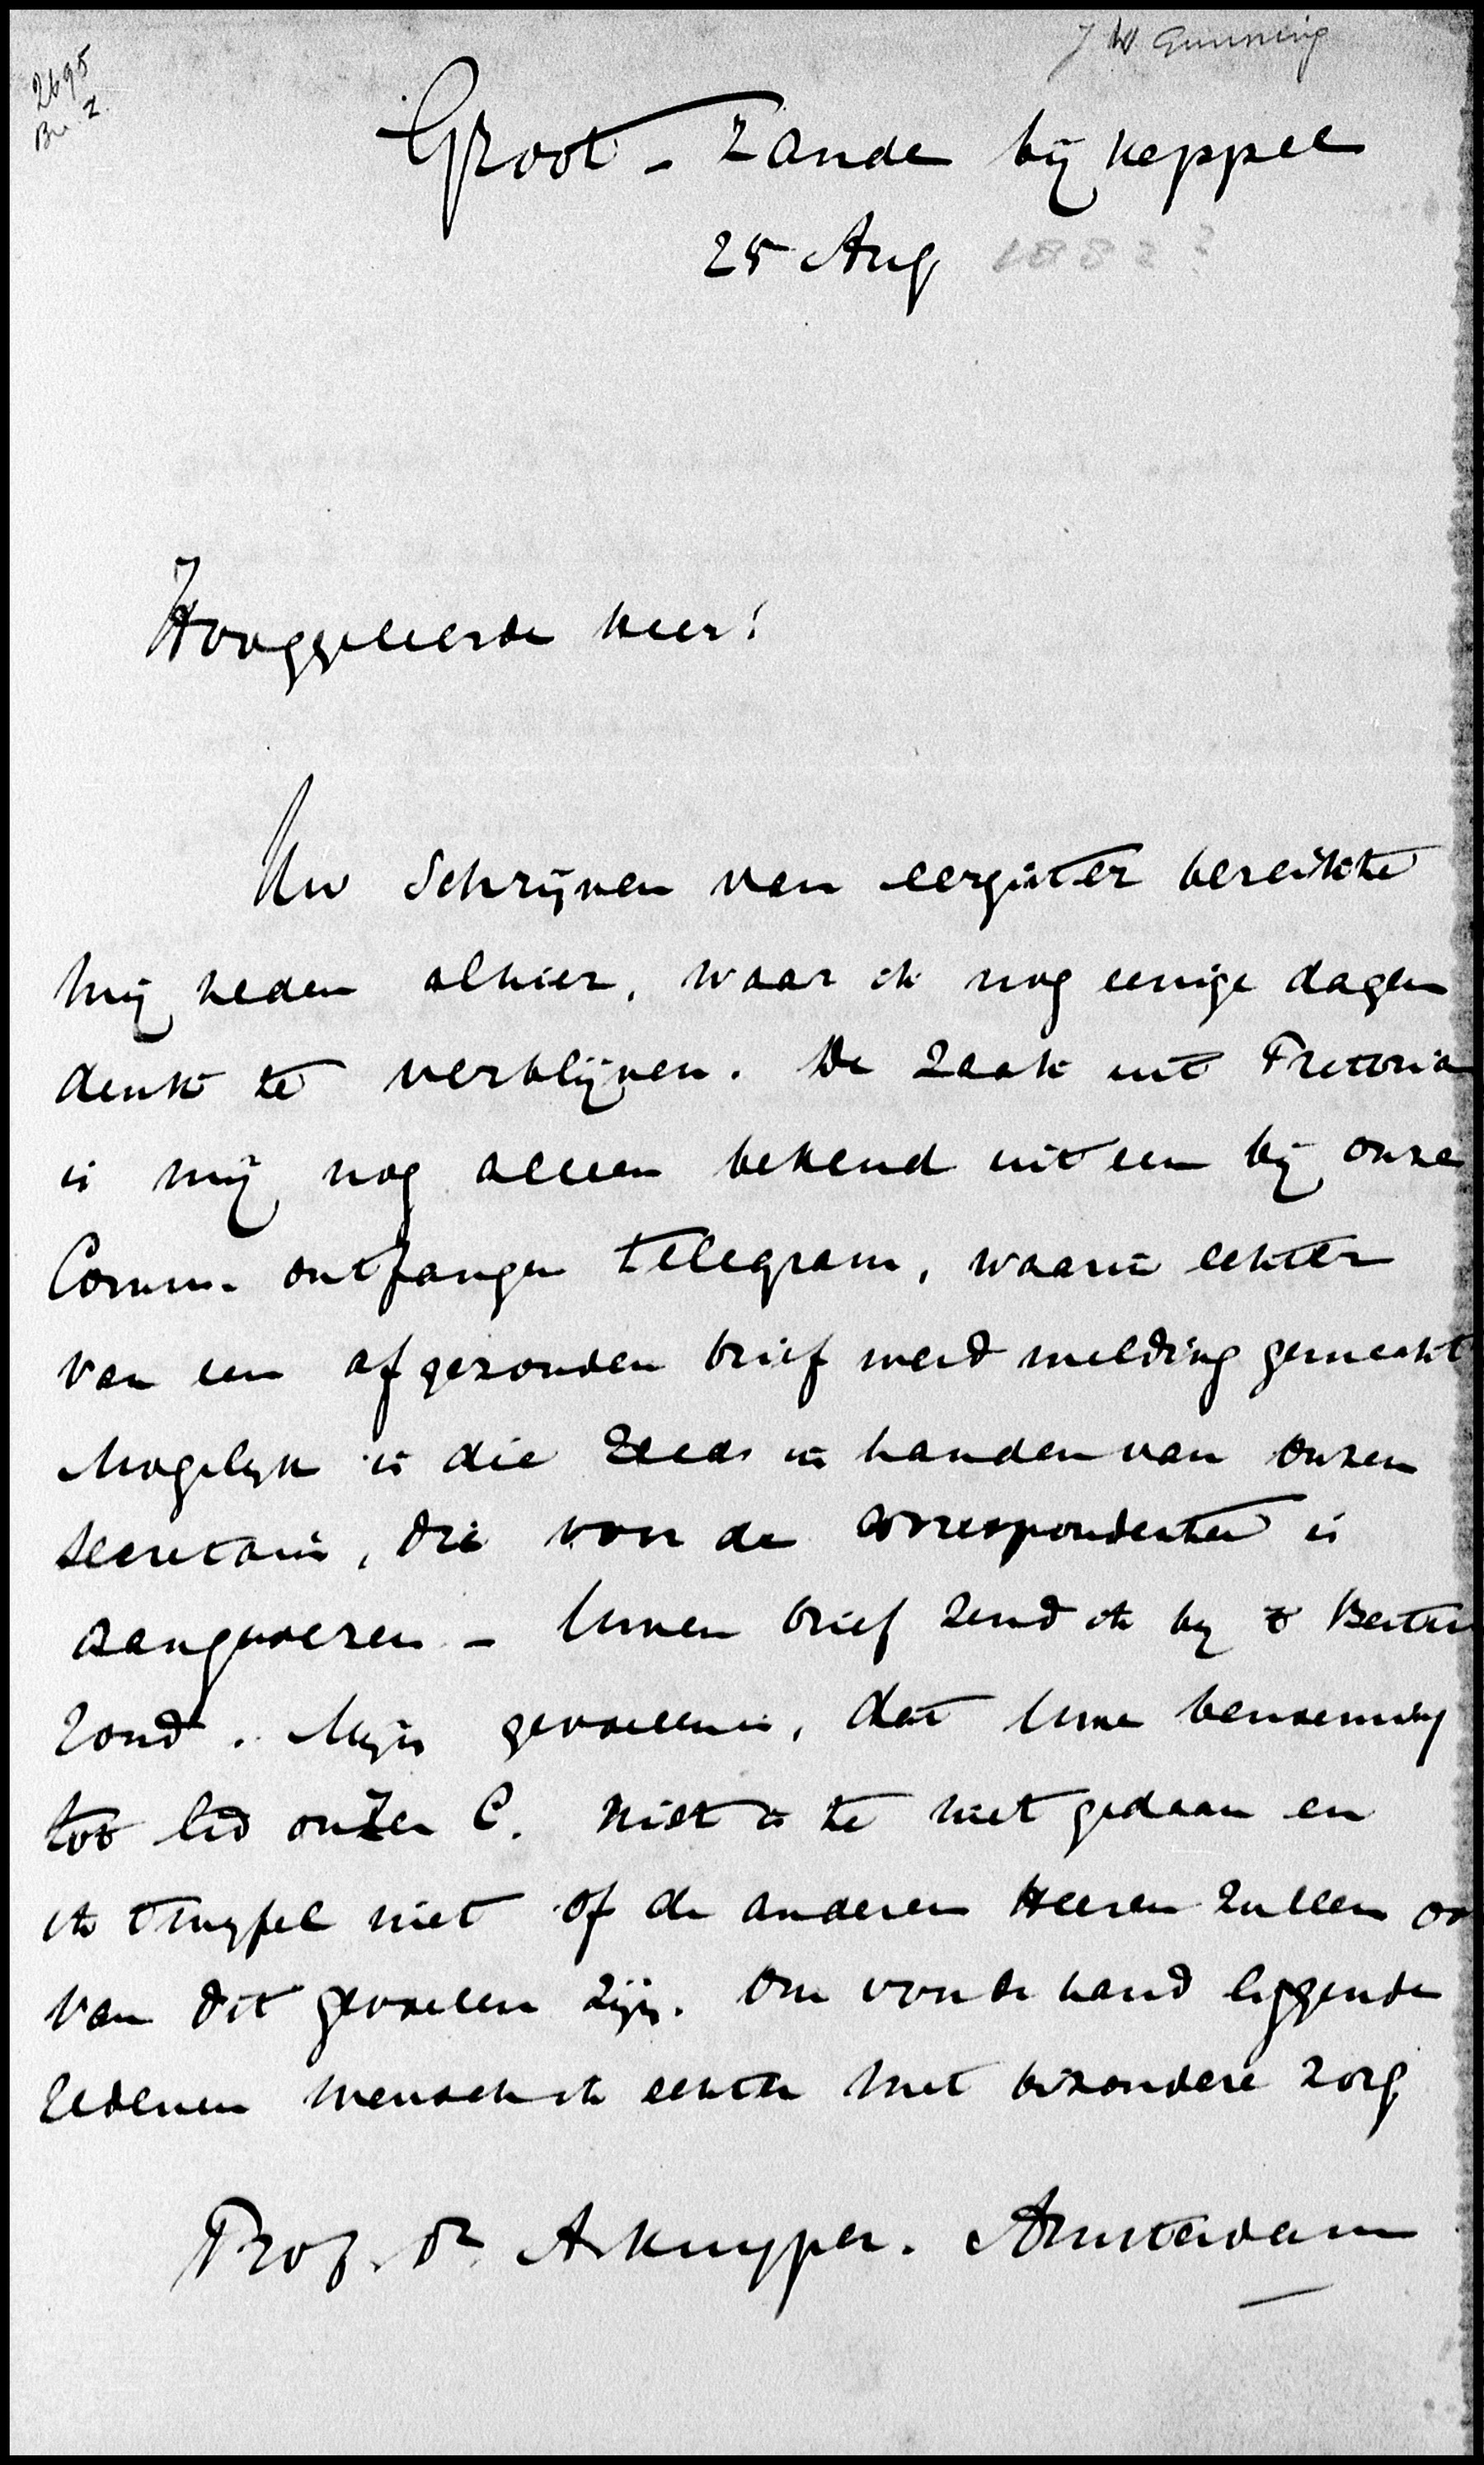 J W Gunning
2695
Br. Z.
Groot-Zande bij Keppel
25 Aug 1882?
Hooggeleerde Heer!
Uw schrijven van eergister bereikte
mij heden alhier, waar ik nog eenige dagen
denk te verblijven. De zaak uit Pretoria
is mij nog alleen bekend uit een bij onze
Comm. ontfangen telegram, waarin echter
van een afgezonden brief werd melding gemaakt
Mogelijk is die reeds in handen van onzen
secretaris, die voor de correspondentie is
aangewezen - Uwen brief zend ik bij 't
rond. Mijn gevoelen is, dat Uwe benoeming
tot lid onzer C. niet is te niet gedaan en
ik twijfel niet of de anderen Heeren zullen oo
van dit gevoelen zijn. Om voor de hand liggende
redenen wensch ik echter met bizondere zorg
Prof. Dr. A. Kuyper. Amsterdam